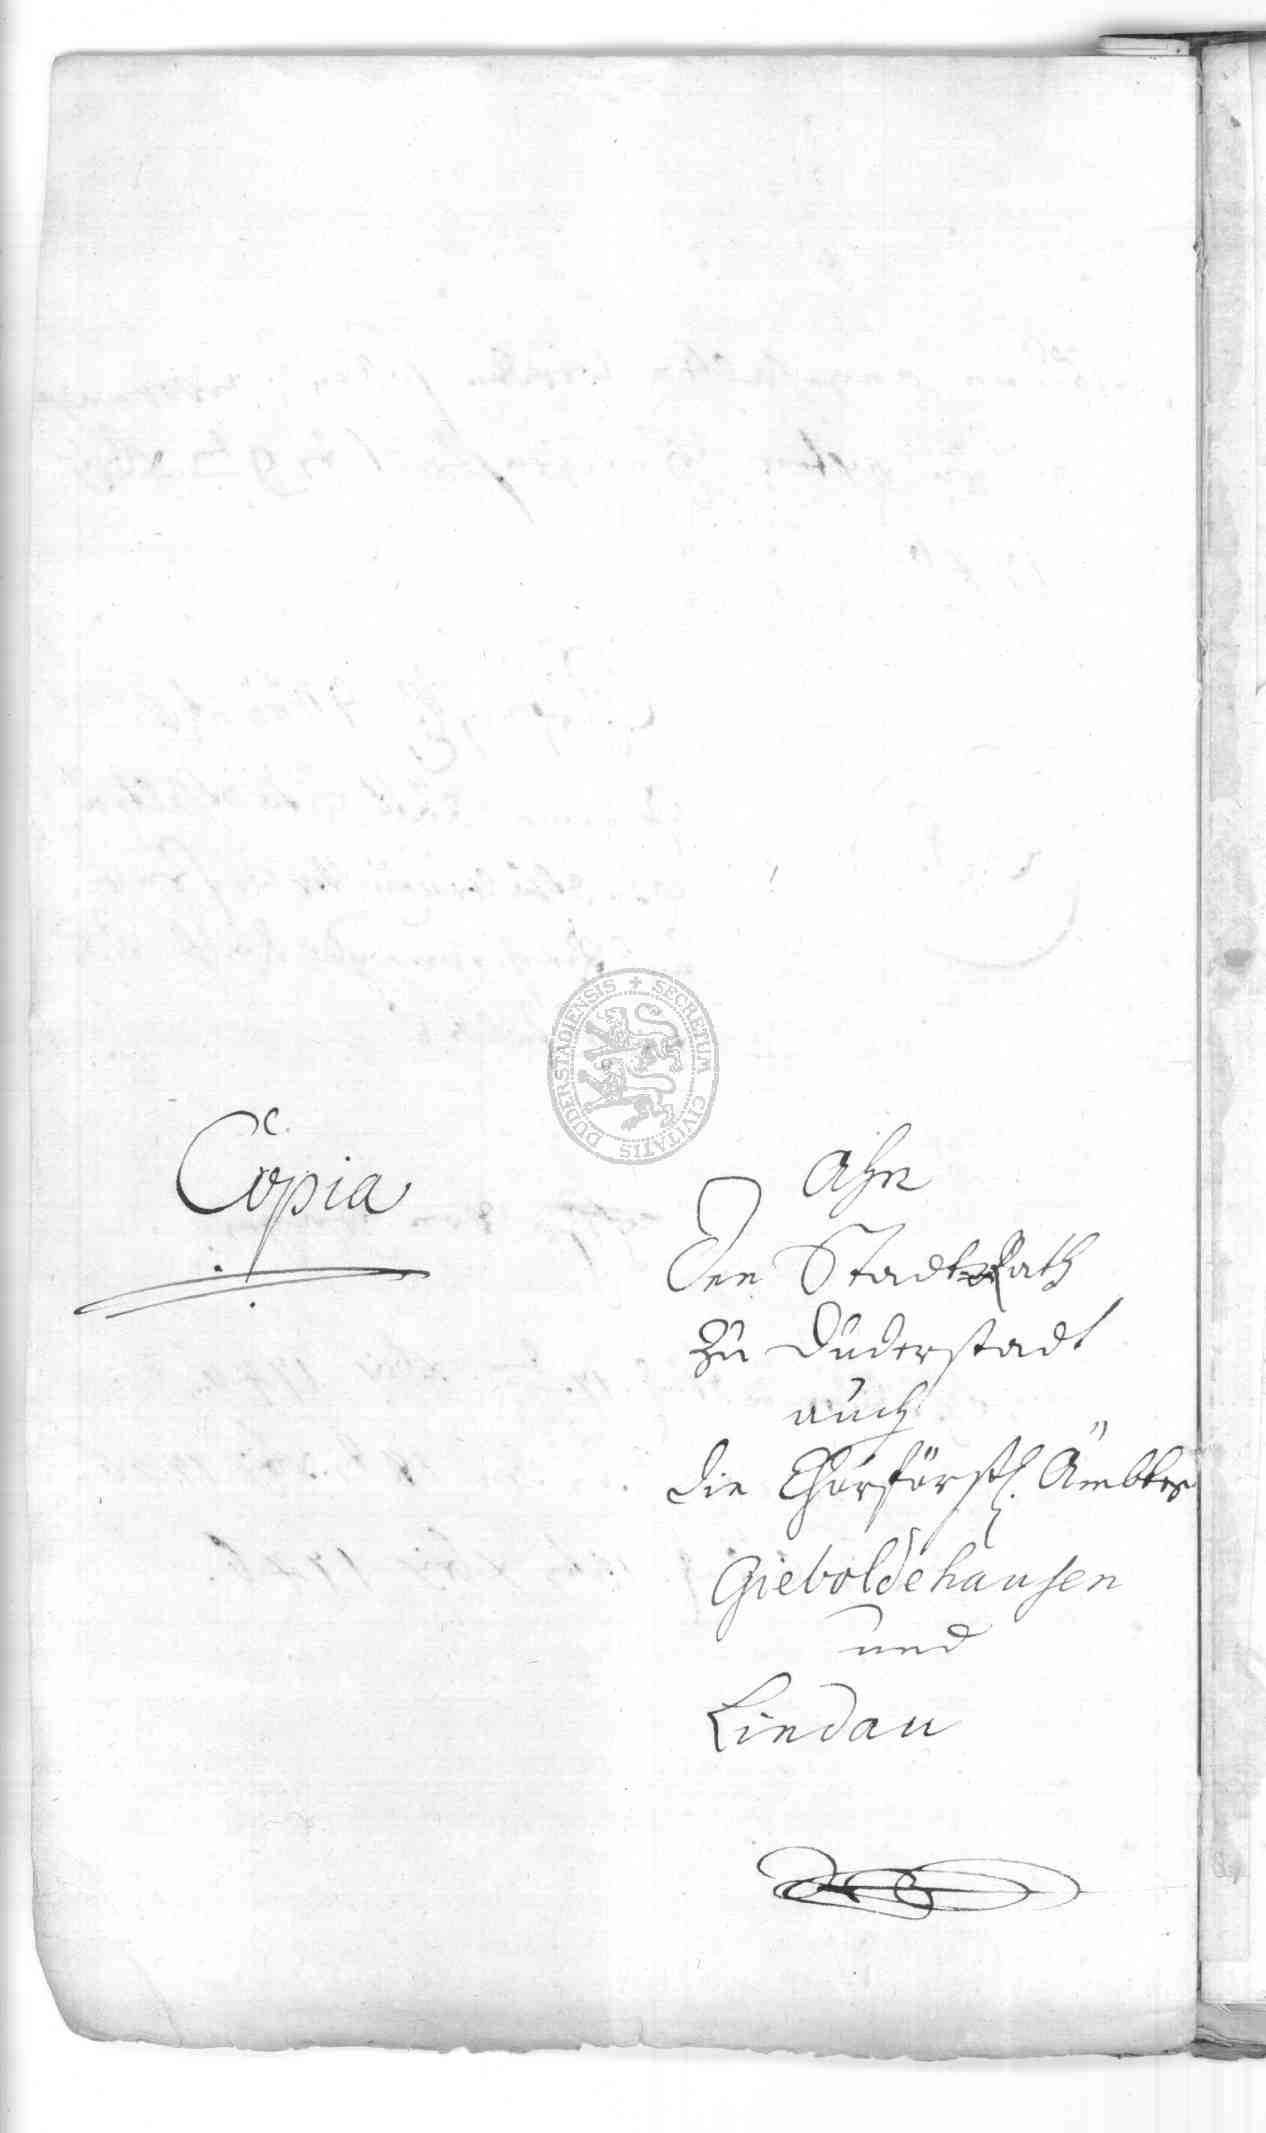 Copia
Ahn
Den StadtRath
zu Duderstadt
auch
die Churfürstl. Ämbter
Gieboldehausen
und
Lindau
SECRETUM CIVITATIS DUDERSTADIENSIS